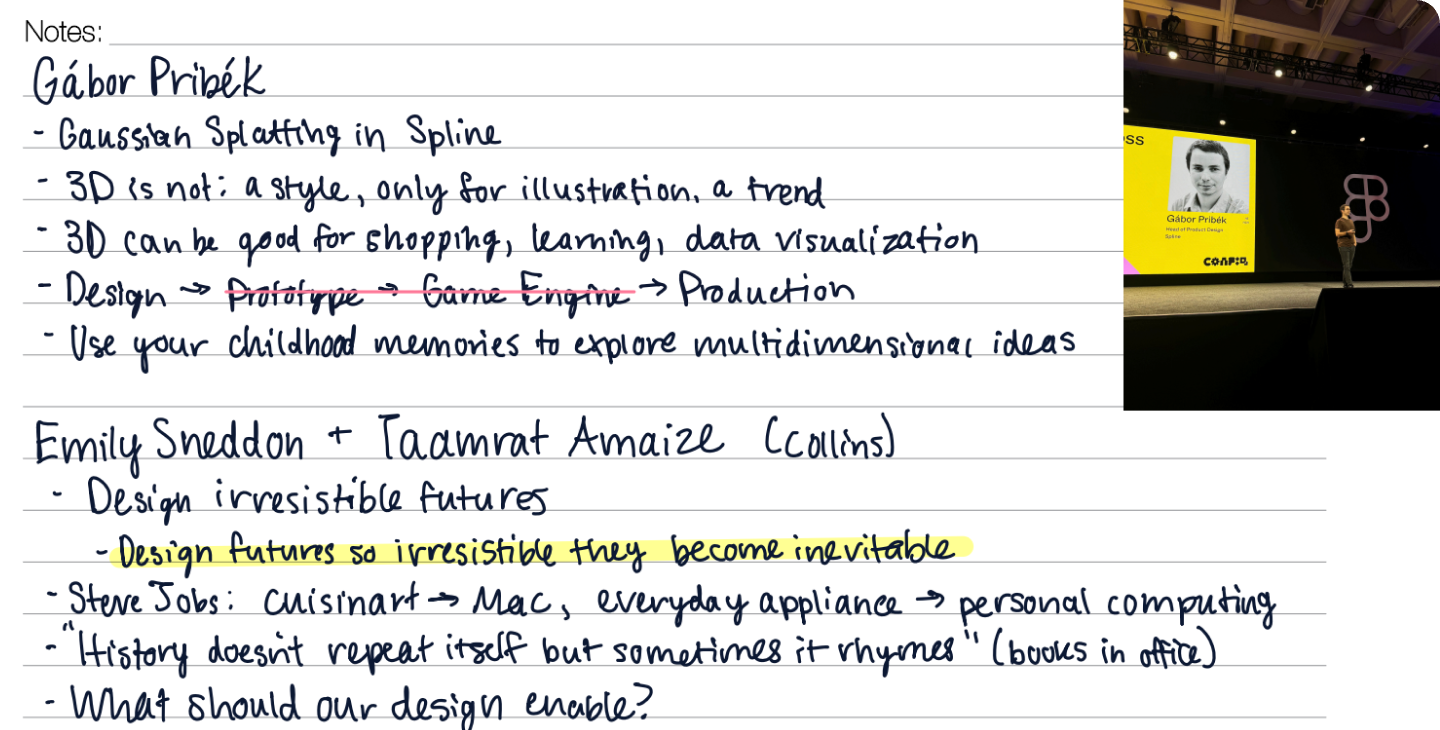 Notes:
Gábor Pribék
- Gaussian Splatting in Spline
- 3D is not: a style, only for illustration, a trend
- 3D can be good for shopping, learning, data visualization
- Design → Prototype → Game Engine → Production
- Use your childhood memories to explore multidimensional ideas
oss
Gábor Pribék
Head of Product Design
Spline
CONFIG
Emily Sneddon + Taamrat Amaize (Collins)
- Design irresistible futures
- Design futures so irresistible they become inevitable
- Steve Jobs: cuisinart → Mac, everyday appliance → personal computing
- "History doesn't repeat itself but sometimes it rhymes" (books in office)
- What should our design enable?